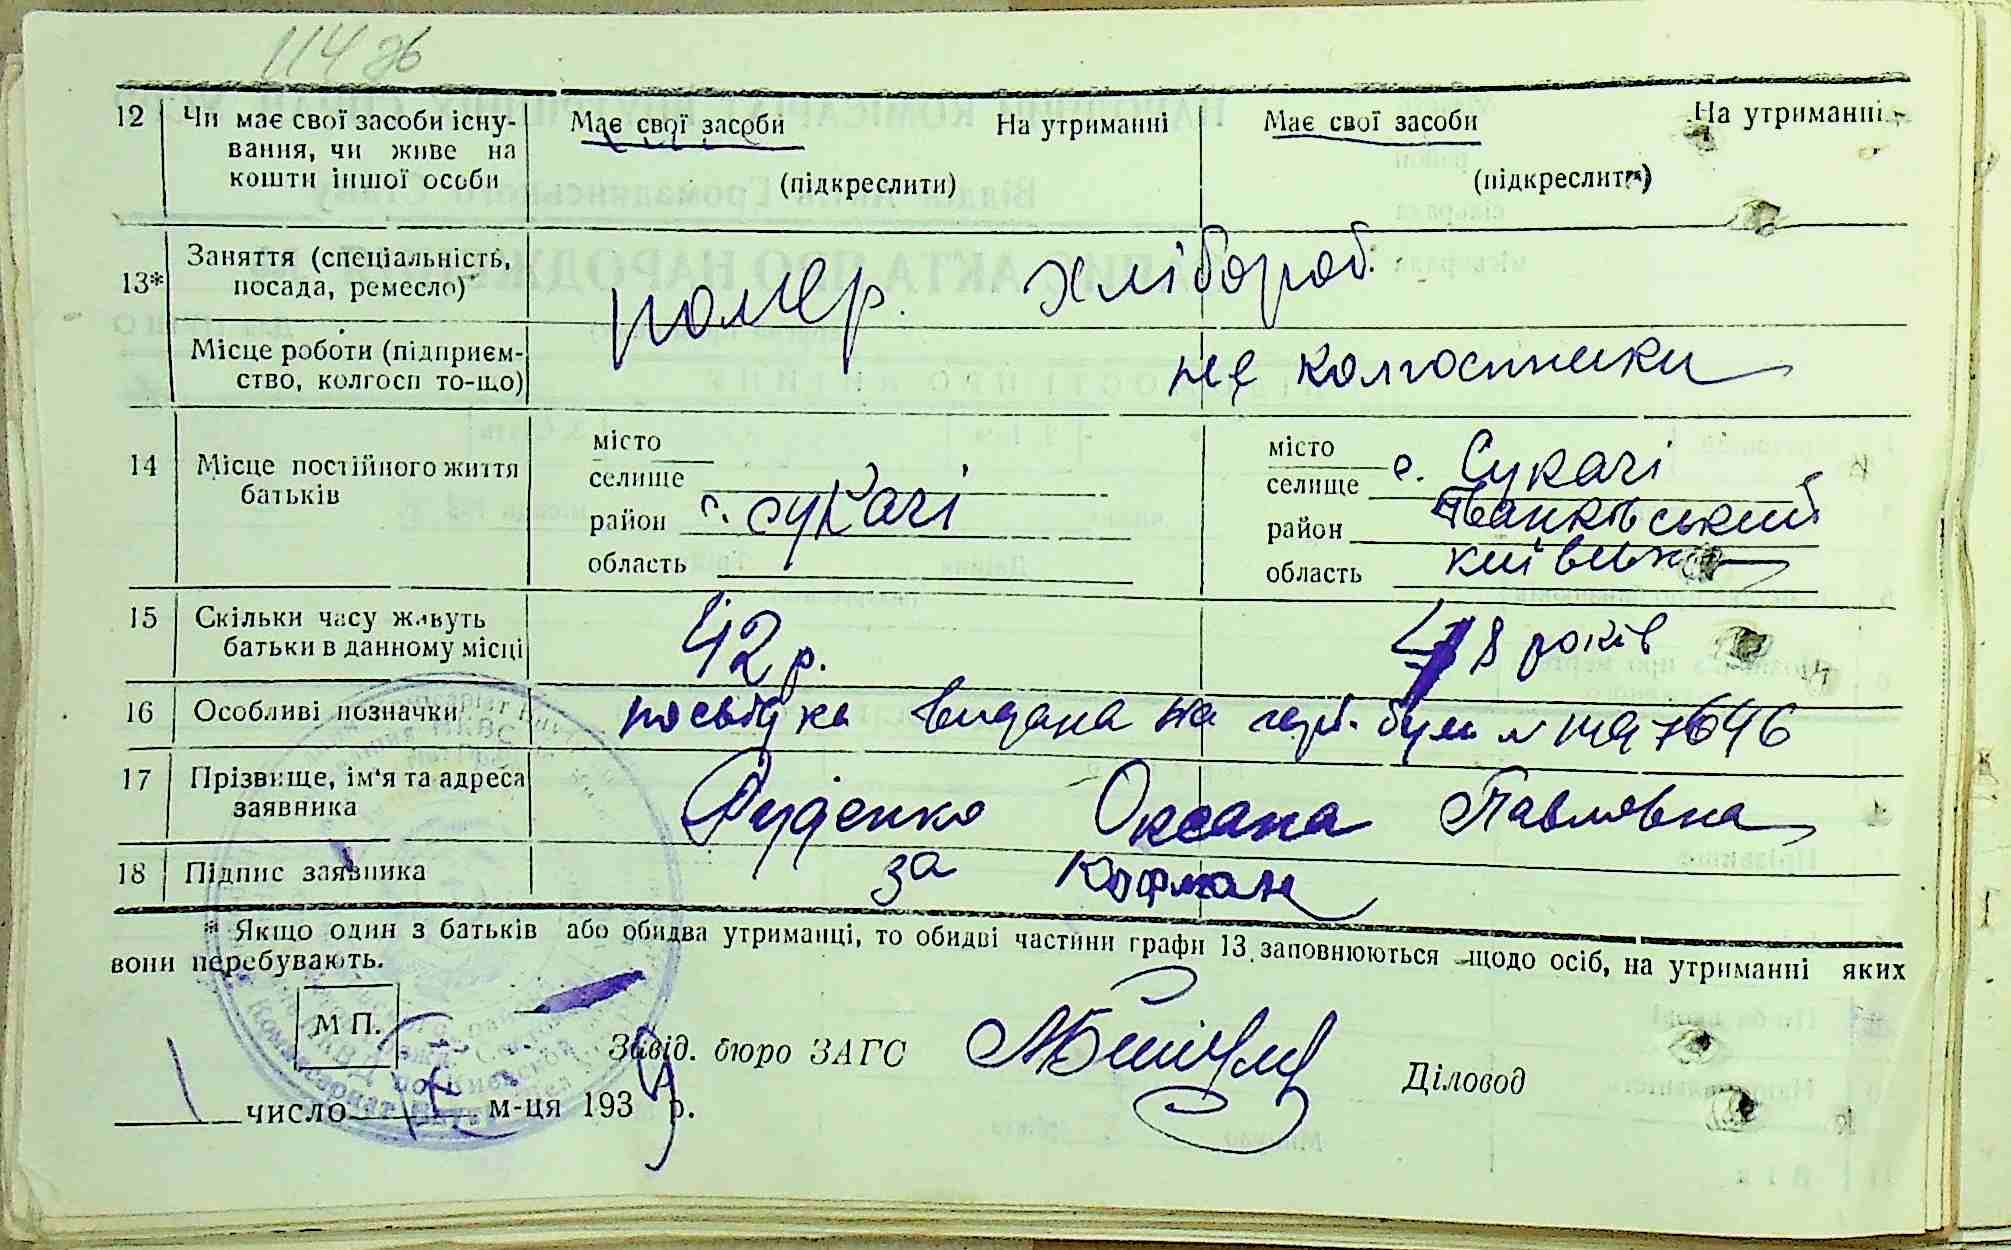 114 зв
12 Чи має свої засоби існування, чи живе на кошти іншої особи Має свої засоби На утриманні (підкреслити) Має свої засоби На утриманні (підкреслити)
13* Заняття (спеціальність, посада, ремесло) помер. хлібороб.
Місце роботи (підприємство, колгосп то-що) не колгоспники
14 Місце постійного життя батьків
місто
селище
район с. Сукачі
область
місто с. Сукачі
селище
район Іванківський
область Київська
15 Скільки часу живуть батьки в данному місці 42 р. 48 років
16 Особливі позначки посвідка видана на герб. бум № 7646
17 Прізвище, ім'я та адреса заявника Руденко Оксана Павловна
18 Підпис заявника за Кофман
* Якщо один з батьків або обидва утриманці, то обидві частини графи 13 заповнюються щодо осіб, на утриманні яких
вони перебувають.
М П.
Завід. бюро ЗАГС
Діловод
1 число м-ця 193 р.